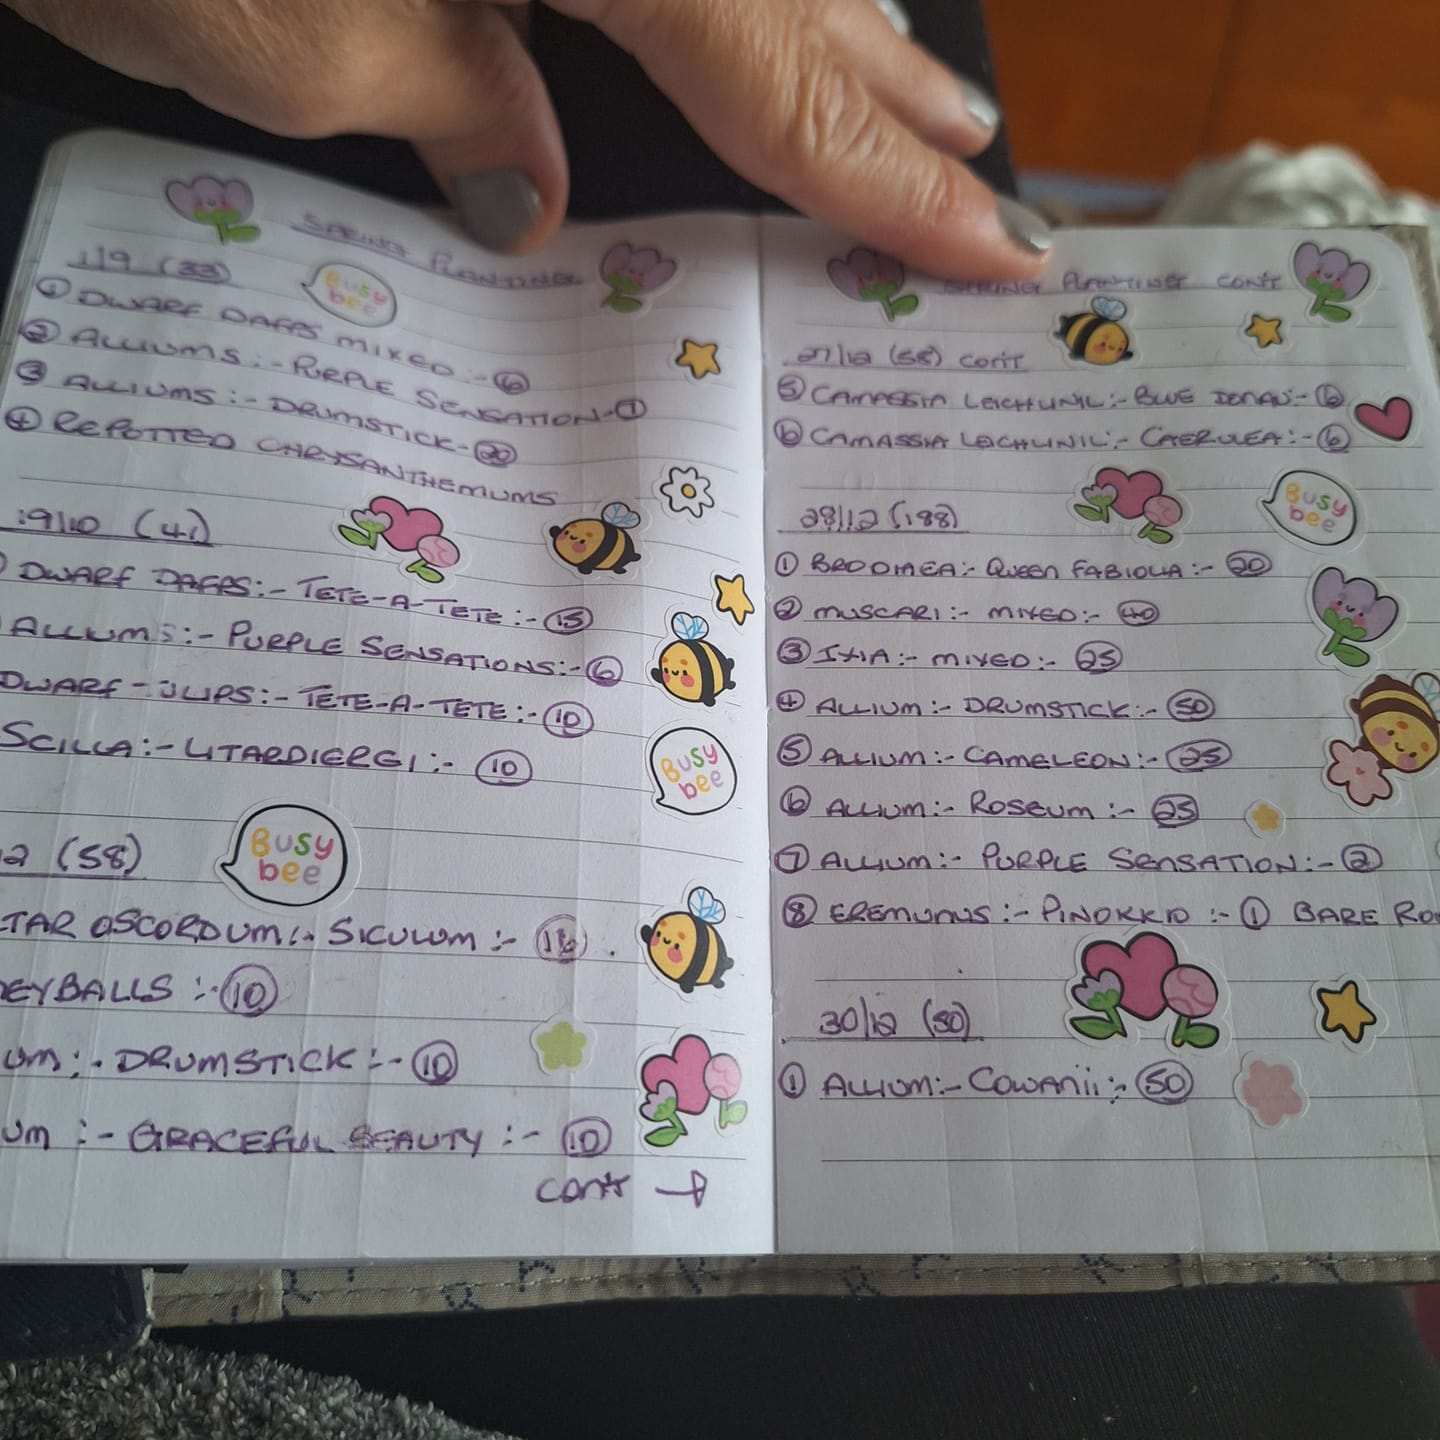 SPRING PLANTING
1/9 (33)
Busy bee
① DWARF DAFFS MIXED:- ⑥
② ALLIUMS:- PURPLE SENSATION- ⑦
③ ALLIUMS:- DRUMSTICK- ⑳
④ REPOTTED CHRYSANTHEMUMS
19/10 (41)
DWARF DAFFS:- TETE-A-TETE:- ⑮
ALLIUMS:- PURPLE SENSATIONS:- ⑥
DWARF TULIPS:- TETE-A-TETE:- ⑩
SCILLA:- LITARDIEREI:- ⑩
Busy bee
12 (58)
Busy bee
TAR OSCORDUM:- SICULUM:- ⑯
EYBALLS:- ⑩
UM:- DRUMSTICK:- ⑩
UM:- GRACEFUL BEAUTY:- ⑩
CONT →
SPRING PLANTING CONT
27/12 (58) CONT
⑤ CAMASSIA LEICHLINIL:- BLUE DONAU:- ⑥
⑥ CAMASSIA LEICHLINIL:- CAERULEA:- ⑥
28/12 (188)
Busy bee
① BRODIAEA:- QUEEN FABIOLA:- ⑳
② MUSCARI:- MIXED:- ㊵
③ IXIA:- MIXED:- ㉕
④ ALLIUM:- DRUMSTICK:- ㊿
⑤ ALLIUM:- CAMELEON:- ㉕
⑥ ALLIUM:- ROSEUM:- ㉕
⑦ ALLIUM:- PURPLE SENSATION:- ②
⑧ EREMURUS:- PINOKKIO:- ① BARE RO
30/12 (50)
① ALLIUM:- COWANII:- ㊿